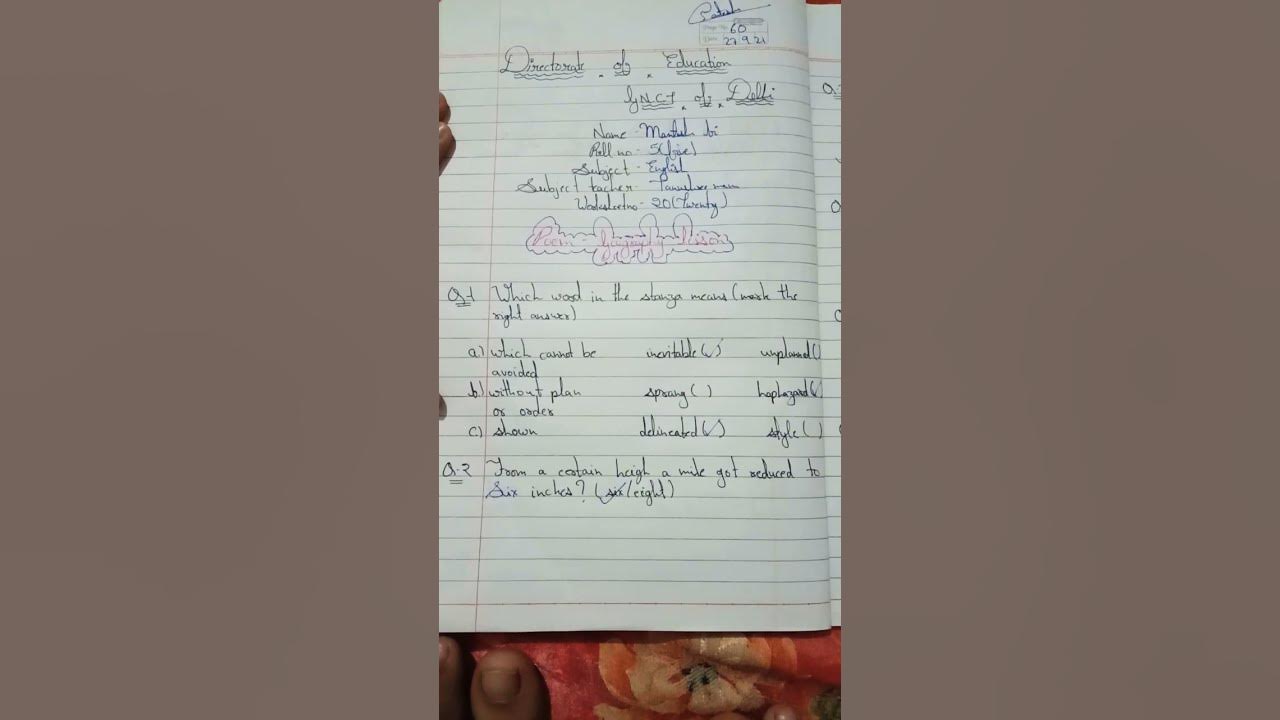 Page No. 60
Date 27 9 21
Directorate of Education
G.N.C.T of Delhi
Name - bi
Roll no - 5(five)
Subject - English
Subject tacher - mam
Worksheetno - 20(Twenty)
Poem - Geography lesson
Q.1 Which word in the stanza means (mark the
right answer)
a) which cannot be inevitable(✓) unplanned()
avoided
b) without plan sprang( ) haphazard(✓)
or order
c) shown delineated(✓) style( )
Q.2 From a certain heigh a mile got reduced to
Six inches? (six/eight)